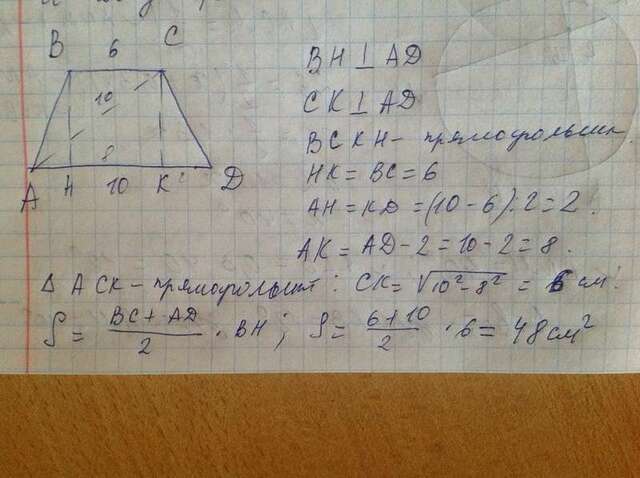 B 6 C
10
8
A H 10 K D
BH ⊥ AD
CK ⊥ AD
BCKH - прямоугольник.
HK = BC = 6
AH = KD = (10 - 6) : 2 = 2
AK = AD - 2 = 10 - 2 = 8.
Δ ACK - прямоугольный: CK = √10² - 8² = 6 см.
S = BC + AD / 2 · BH; S = 6 + 10 / 2 · 6 = 48 см²